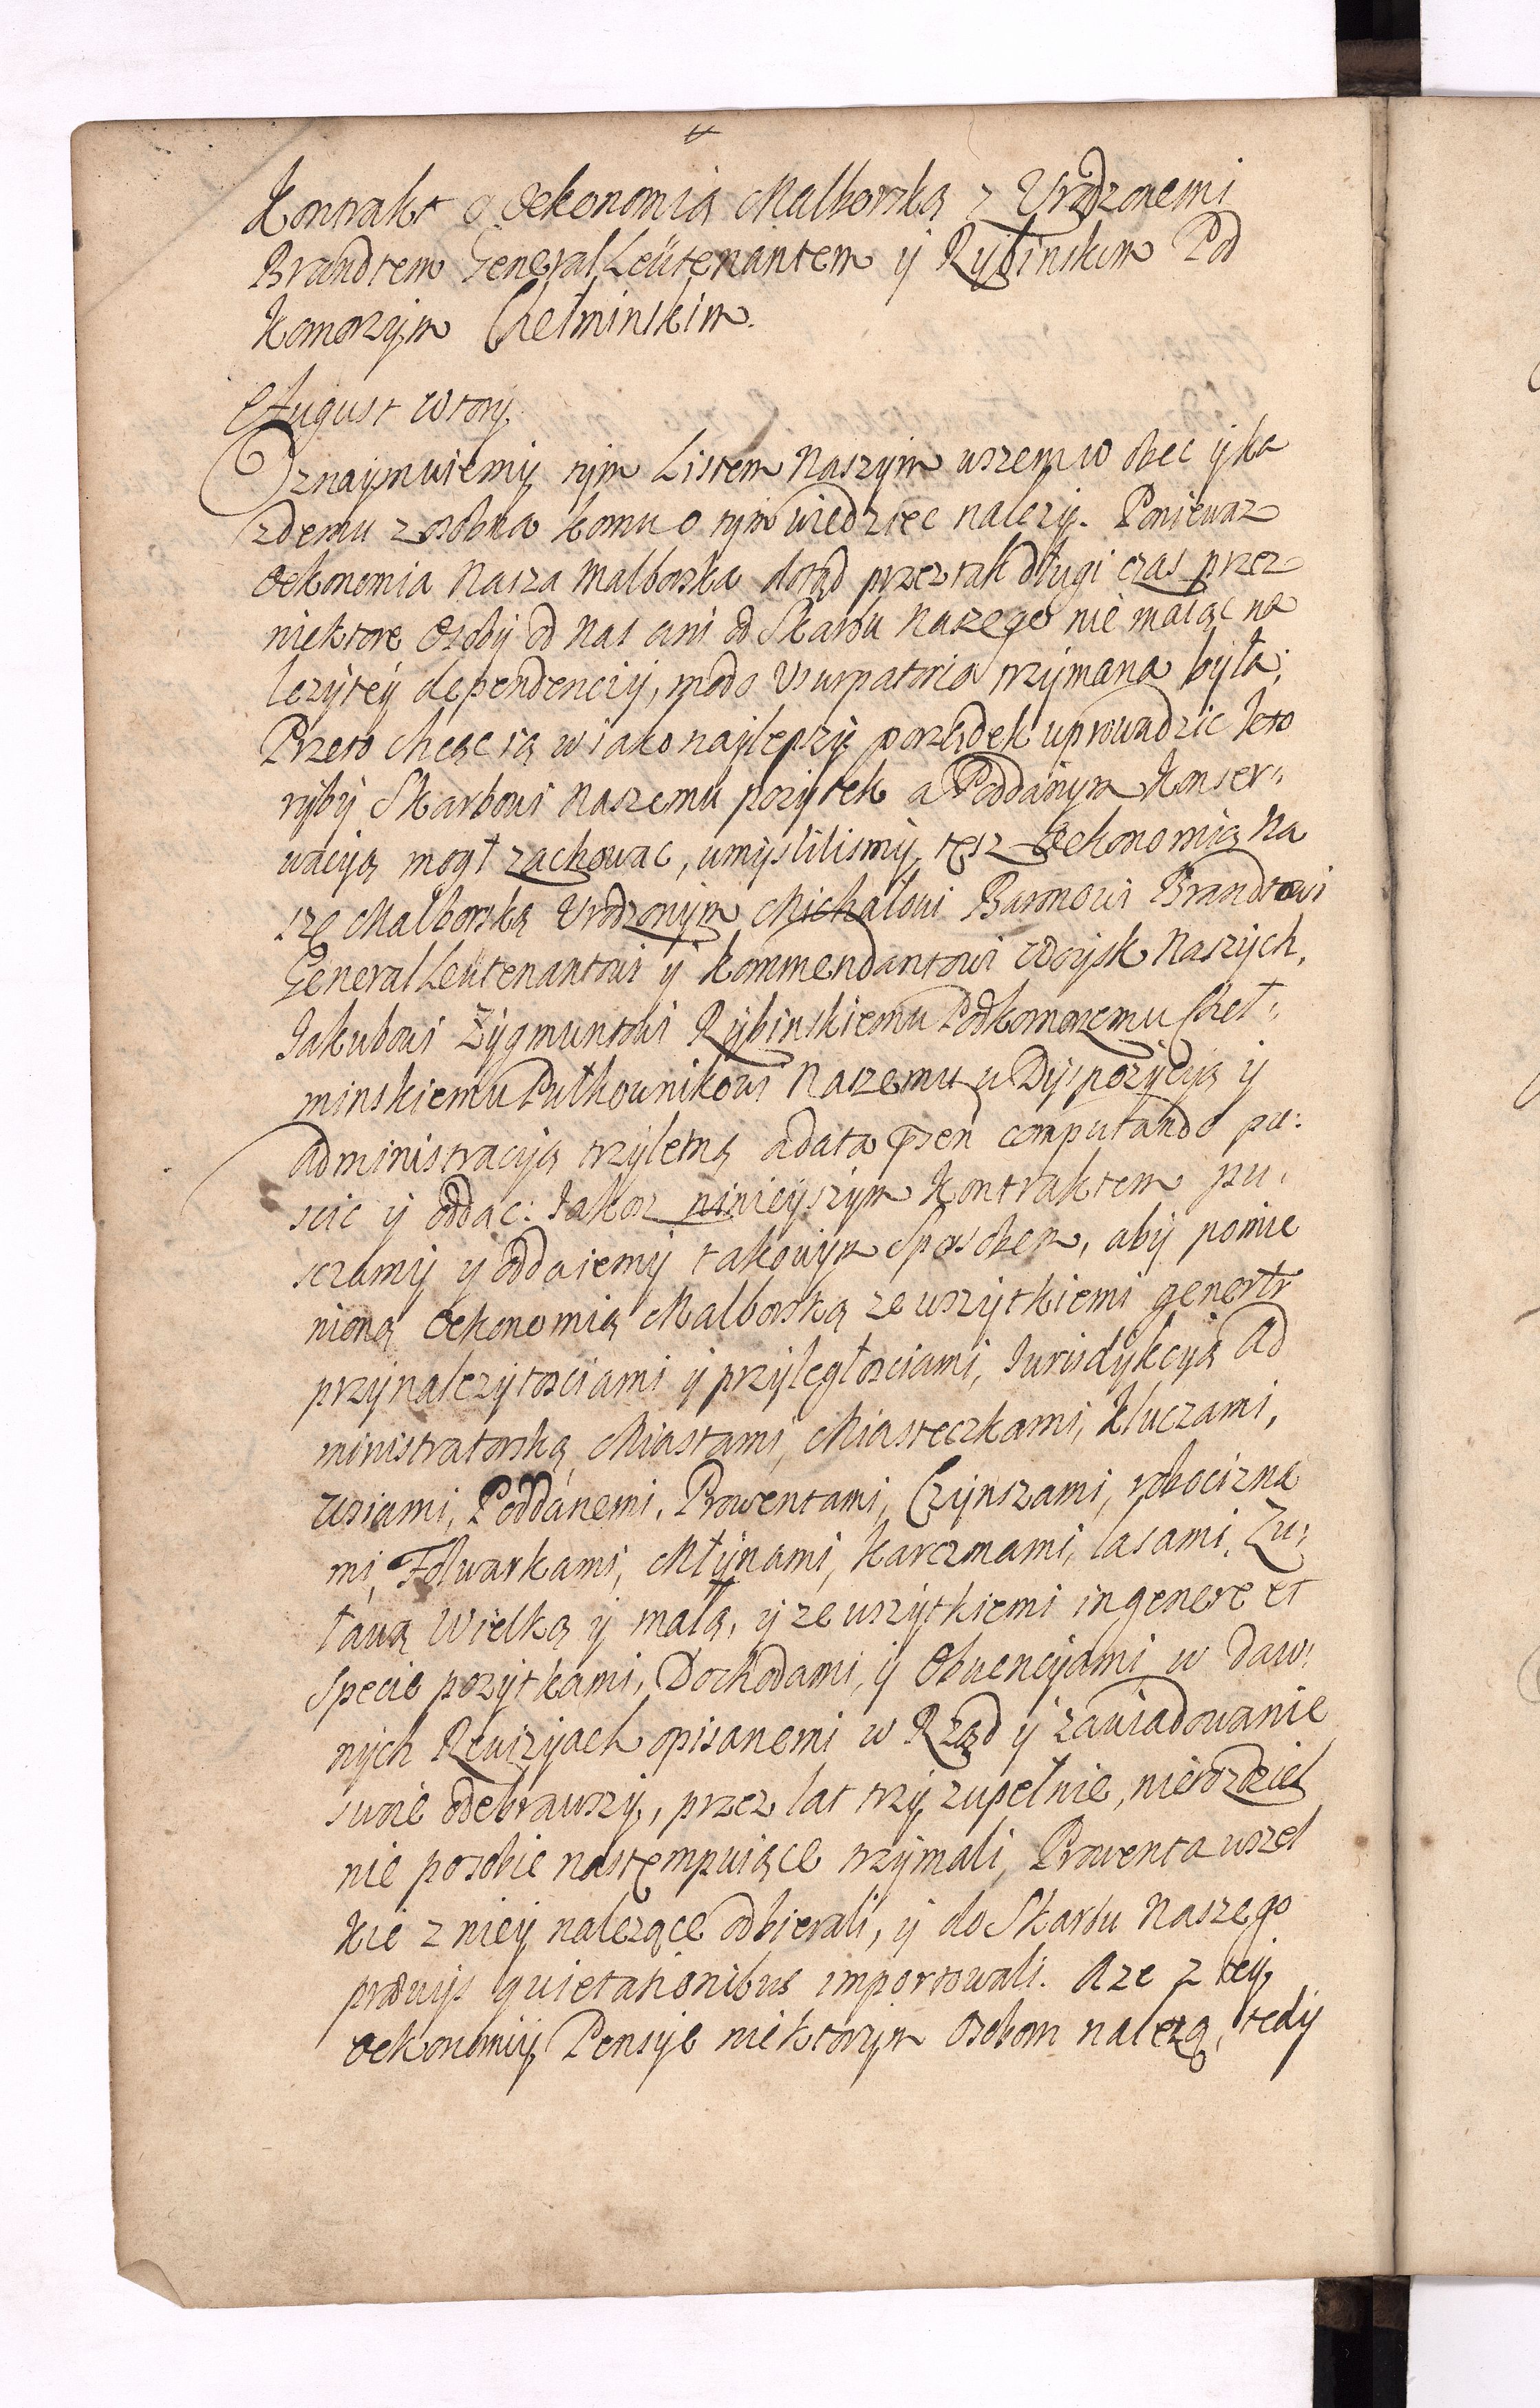 Kontrakt o Oekonomią Malborską z Urodzonemi
Brandtem General Leütenantem ÿ Rybinskim Pod
Komorzÿm Chełminskim.
August Wtorÿ.
Oznaÿmuiemÿ tÿm Listem Naszÿm wszem w obec ÿ ka
zdemu z osobna komu o tÿm wiedziec nalezÿ. Poniewaz
Oekonomia Nasza Malborska dotąd przez tak długi czas przez
niektore Osobÿ od Nas ani od Skarbu Naszego nie maiąc na
lezÿteÿ dependenciÿ, modo Usurpatorio trzÿmana była;
Przeto chcąc ią w iako naÿlepszÿ porządek wprowadzic kto
rÿbÿ Skarbowi Naszemu pozÿtek a Poddanÿm Konser:
wacÿą mogł zachowac, umÿslilismÿ tęsz Oekonomią Na
szę Malborską Urodzonÿm Michałowi Baronowi Brandtowi
General Leütenantowi ÿ Kommendantowi Woÿsk Naszÿch,
Jakubowi Zÿgmuntowi Rÿbinskiemu Podkomorzemu Cheł:
minskiemu Pułkownikowi Naszemu w Dÿspozÿcÿą ÿ
administracÿą trzÿletnią a data psen computando pu:
scic ÿ oddac. Jakoz ninieÿszÿm Kontraktem pu:
sczamÿ ÿ oddaiemÿ takowÿm Sposobem, abÿ pomie
nioną Oekonomią Malborską ze wszÿtkiemi genertr
przÿnalezÿtosciami ÿ przÿległosciami, Jurisdÿkcÿą Ad
ministratorską, Miastami, Miasteczkami, Kluczami,
Wsiami, Poddanemi, Prowentami, Czÿnszami, robocizna
mi, Folwarkami, Młÿnami, Karczmami, lasami, Zu:
ławą Wielką ÿ małą, ÿ ze wszÿtkiemi in genere et
Specie pozÿtkami, Dochodami, ÿ Obwencÿami w daw:
nÿch Rewizÿach opisanemi w Rząd ÿ zawiadowanie
swoie odebrawszÿ, przez lat trzÿ zupełnie, nierozdziel
nie po sobie nastęmpuiące trzÿmali, Prowenta wszel
kie z nieÿ nalezące odbierali, ÿ do Skarbu Naszego
prævÿs quietationibus importowali. A ze z teÿ
Oekonomiÿ Pensÿe niektorÿm Osobom nalezą, tedÿ